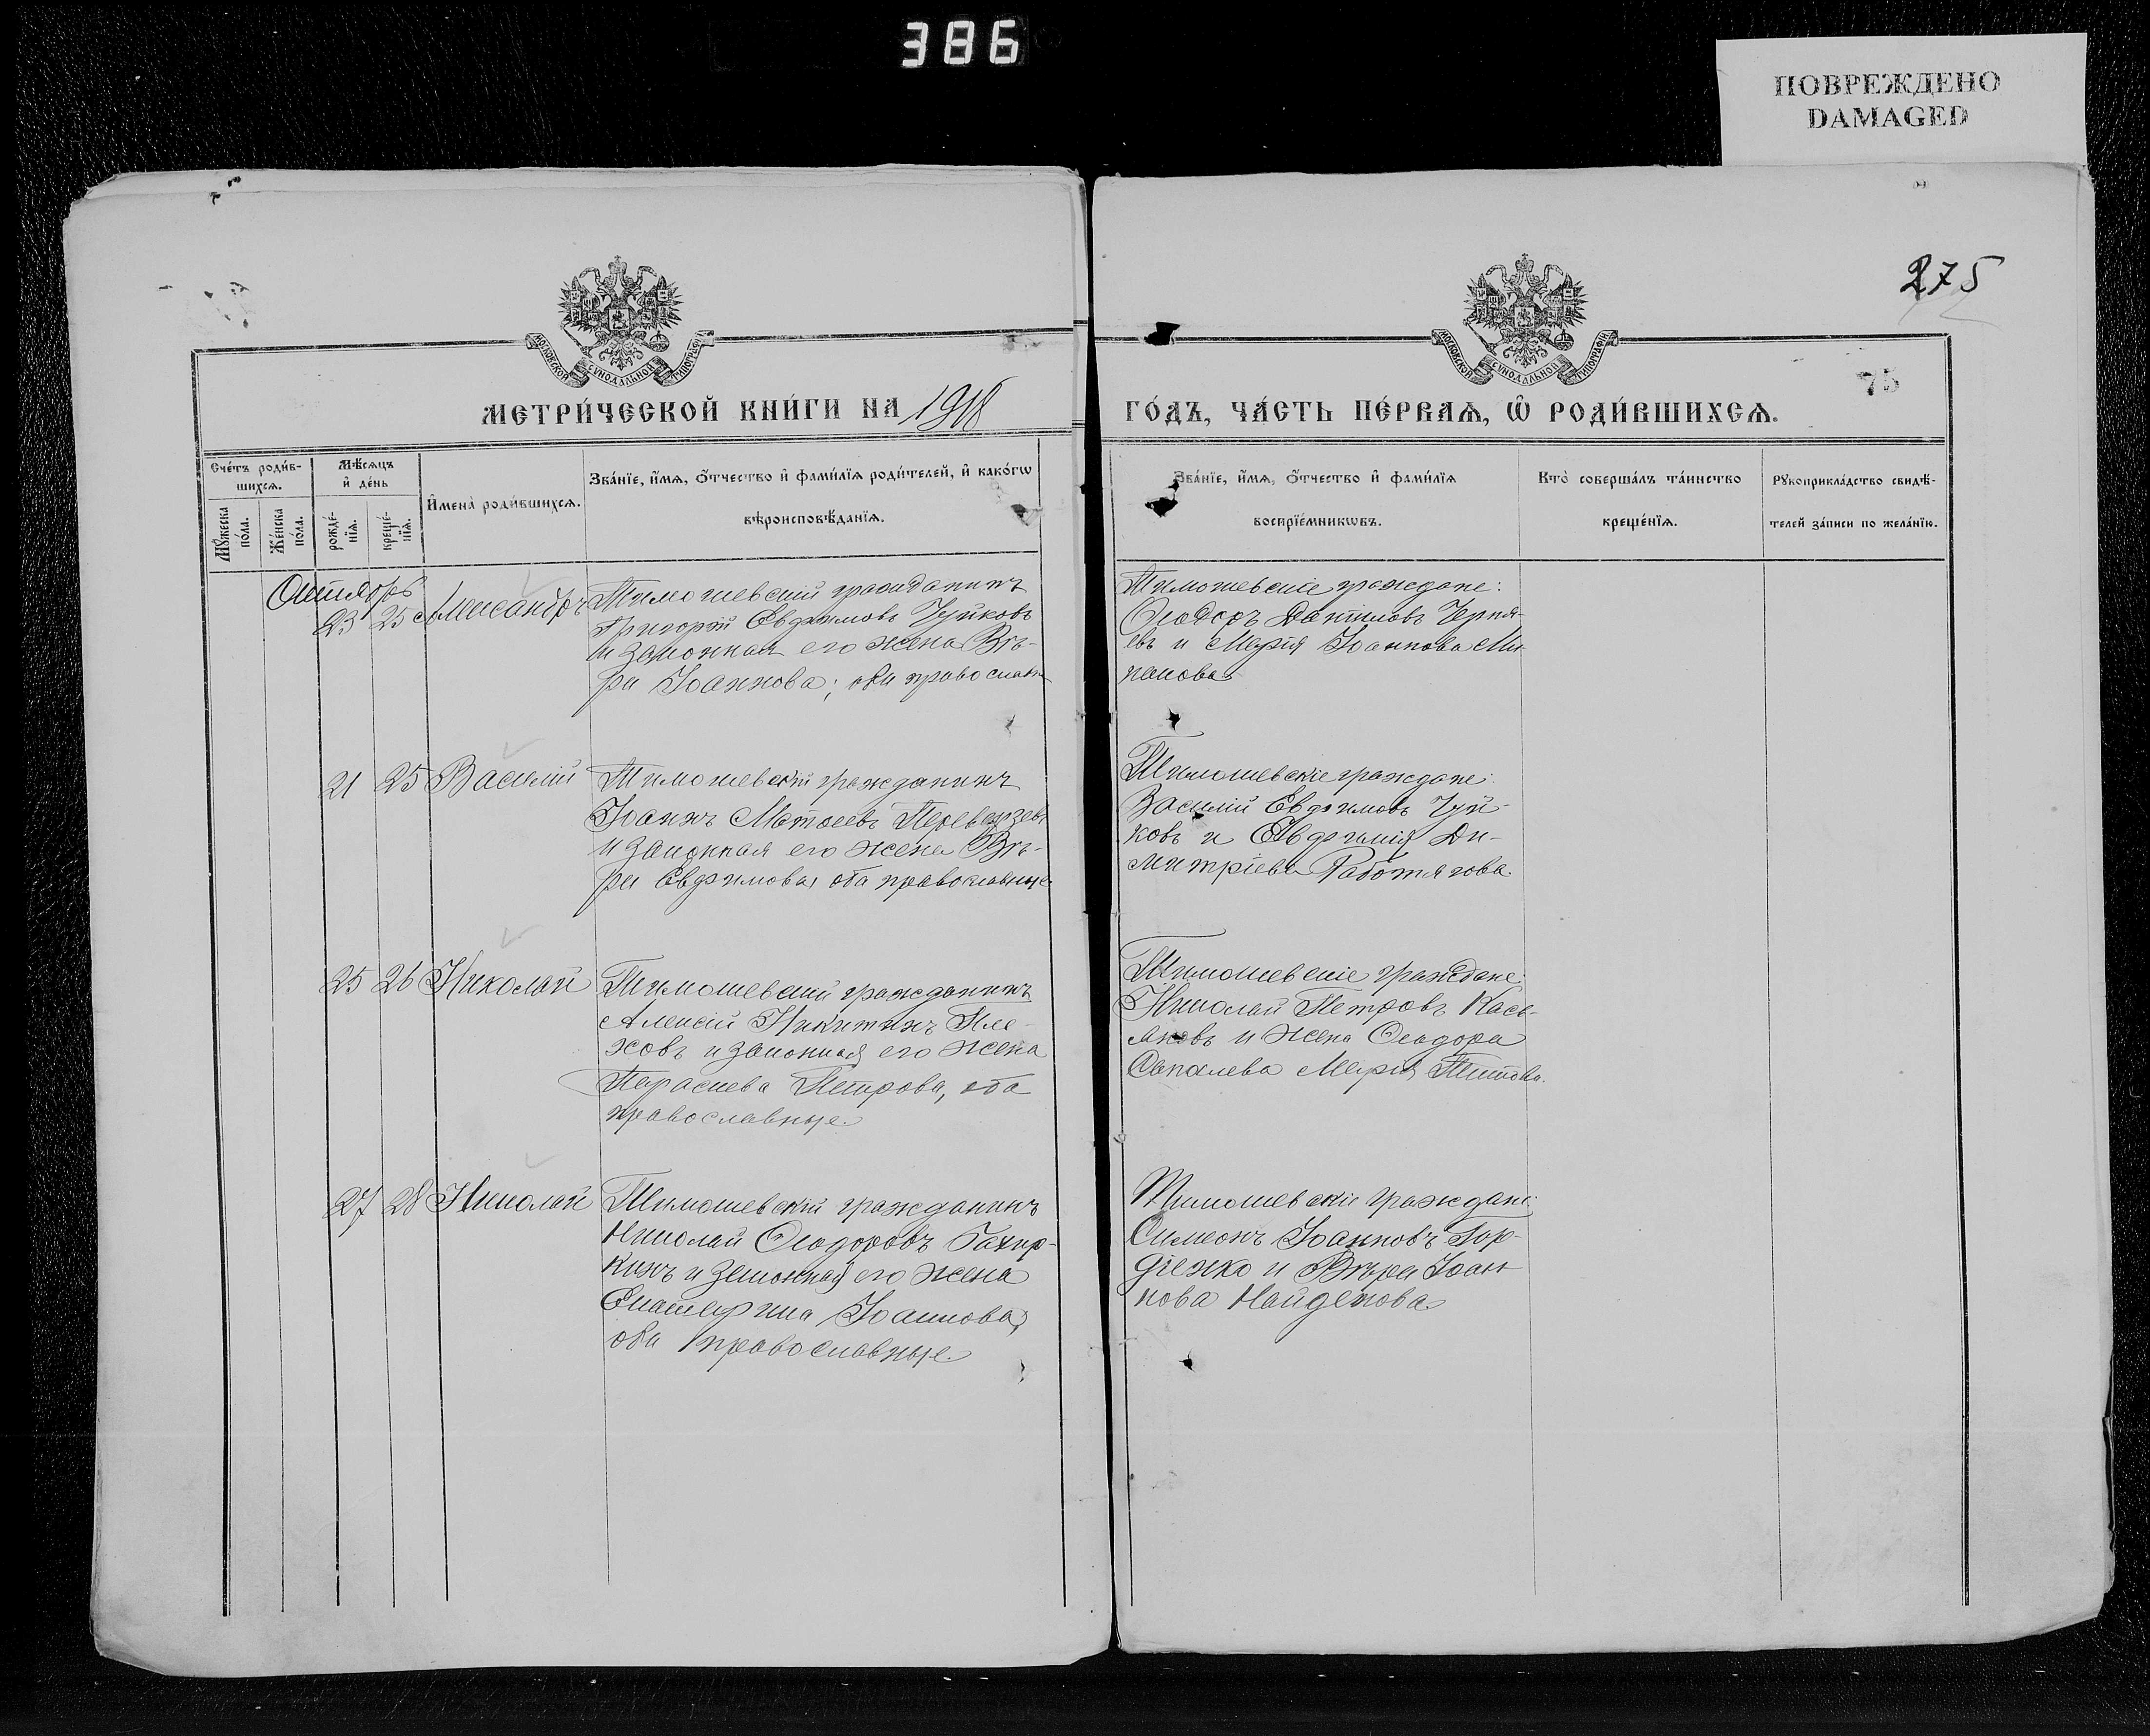 386
ПОВРЕЖДЕНО
DAMAGED
275
75
МОСКОВСКОЙ СУНОДАЛЬНОЙ ТИПОГРАФІИ
МОСКОВСКОЙ СУНОДАЛЬНОЙ ТИПОГРАФІИ
МЕТРИ́ЧЕСКОЙ КНИ́ГИ НА 1918
ГО́ДЪ, ЧА́СТЬ ПЕ́РВАѦ, Ѡ҆ РОДИ́ВШИХСѦ.
Сче́тъ роди́в-
шихсѧ.
Мꙋ́жеска
по́ла.
Же́нска
по́ла.
Мѣ́сѧцъ
и҆ де́нь
рожде́-
нїѧ.
креще́-
нїѧ.
И҆мена̀ роди́вшихсѧ.
Зва́нїе, и҆́мѧ, ѻ҆́тчество и҆ фами́лїѧ роди́телей, и҆ како́гѡ
вѣроисповѣ́данїѧ.
Зва́нїе, и҆́мѧ, ѻ҆́тчество и҆ фами́лїѧ
воспрїе́мникѡвъ.
Кто̀ соверша́лъ та́инство
креще́нїѧ.
Рꙋкоприкла́дство свидѣ́-
телей за́писи по жела́нїю.
Октябрь
23 25 Александръ
Тимошевскій гражданинъ
Григорій Евдокимовъ Чуйковъ
и законная его жена Вѣ-
ра Іоаннова; оба православн
Тимошевскіе граждане:
Ѳеодоръ Даниловъ Черня-
евъ и Марія Іоаннова
21 25 Василій
Тимошевскій гражданинъ
Іоаннъ Матѳеевъ Переверзевъ
и законная его жена Вѣ-
ра Евфимова, оба православные
Тимошевскіе граждане:
Василій Евфимовъ Чуй-
ковъ и Евфимія Ди-
митріева Работягова.
25 26 Николай
Тимошевскій гражданинъ
Алексій Никитинъ Пле-
ховъ и законная его жена
Параскева Петрова, оба
православные.
Тимошевскіе граждане:
Николай Петровъ Кась-
яновъ и жена Ѳеодора
Марія Титова.
27 28 Николай
Тимошевскій гражданинъ
Николай Ѳеодоровъ
и законная его жена
Екатерина Іоаннова,
оба православные.
Тимошевскіе граждане:
Симеонъ Іоанновъ Гор-
діенко и Вѣра Іоан
нова Найденова.